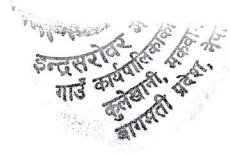 इन्द्रसरोवर
गाउँ कार्यपालिकाको
कुलेखानी, मकवा
बागमती प्रदेश, नेपा